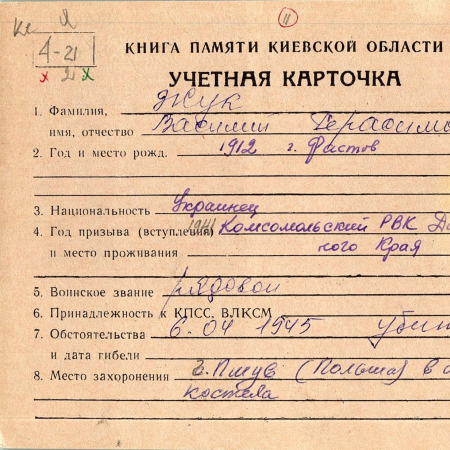 11
4-21
КНИГА ПАМЯТИ КИЕВСКОЙ ОБЛАСТИ
УЧЕТНАЯ КАРТОЧКА
1. Фамилия, Жук
имя, отчество Василий Герасимо
2. Год и место рожд. 1912 г. Фастов
3. Национальность Украинец
4. Год призыва (вступления) 1941 Комсомольский РВК
и место проживания ного Края
5. Воинское звание рядовой
6. Принадлежность к КПСС, ВЛКСМ
7. Обстоятельства 6.04 1945 убит
и дата гибели
8. Место захоронения (Польша) в
костела